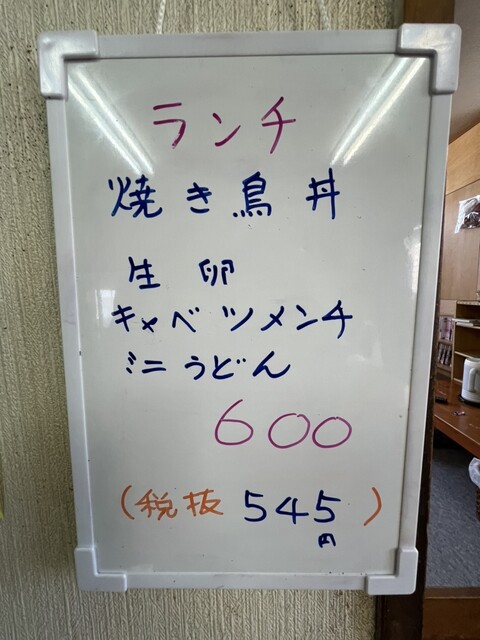 ランチ
焼き鳥丼
生卵
キャベツメンチ
ミニうどん
600
(税抜 545円)